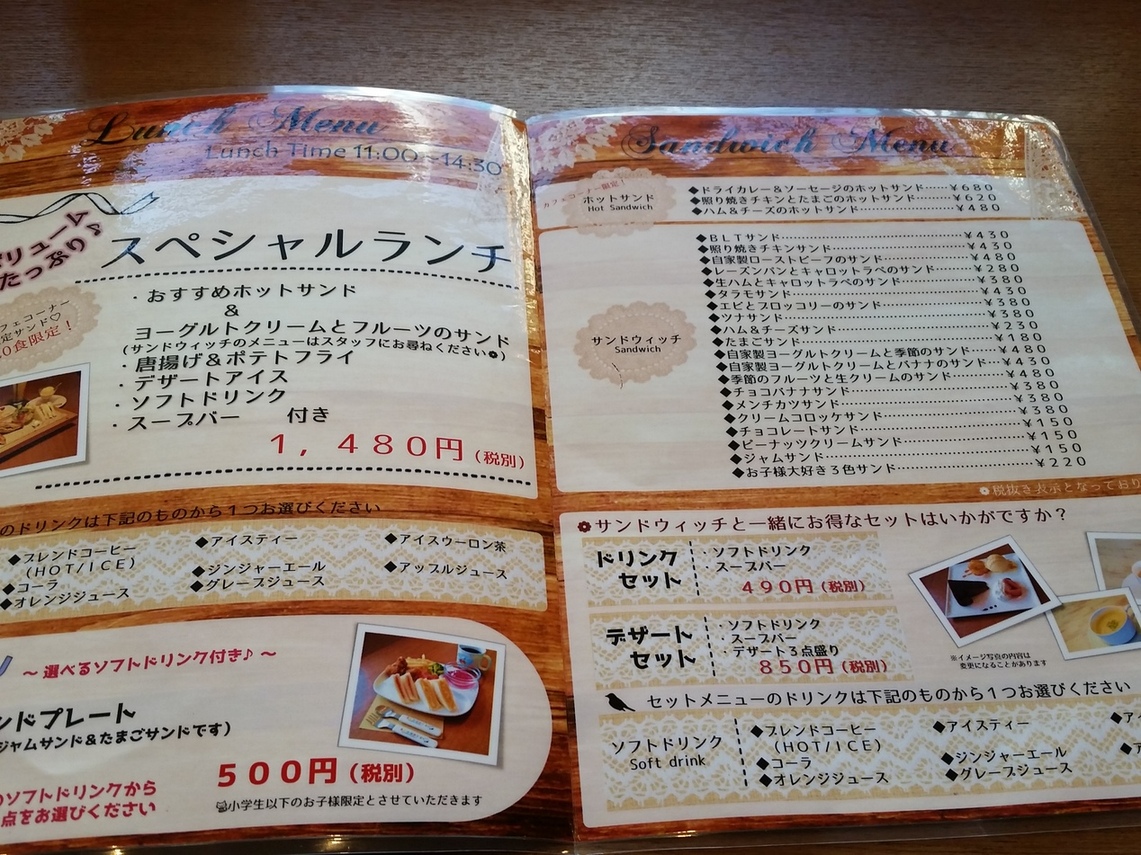 Lunch Menu
Lunch Time 11:00~14:30
ボリューム
たっぷり♪
スペシャルランチ
フェコーナー
定サンド♡
0食限定！
・おすすめホットサンド
&
ヨーグルトクリームとフルーツのサンド
(サンドウィッチのメニューはスタッフにお尋ねください)
・唐揚げ＆ポテトフライ
・デザートアイス
・ソフトドリンク
・スープバー 付き
1，480円(税別)
のドリンクは下記のものから1つお選びください
◆ブレンドコーヒー ◆アイスティー ◆アイスウーロン茶
(HOT/ICE)
◆コーラ ◆ジンジャーエール ◆アップルジュース
◆オレンジジュース ◆グレープジュース
～選べるソフトドリンク付き♪～
ンドプレート
ジャムサンド＆たまごサンドです)
500円(税別)
のソフトドリンクから
点をお選びください
小学生以下のお子様限定とさせていただきます
Sandwich Menu
カフェコーナー限定！
ホットサンド
Hot Sandwich
◆ドライカレー＆ソーセージのホットサンド……¥680
◆照り焼きチキンとたまごのホットサンド……¥620
◆ハム＆チーズのホットサンド……¥480
サンドウィッチ
Sandwich
◆BLTサンド……¥430
◆照り焼きチキンサンド……¥430
◆自家製ローストビーフのサンド……¥480
◆レーズンパンとキャロットラペのサンド……¥280
◆生ハムとキャロットラペのサンド……¥380
◆タラモサンド……¥430
◆エビとブロッコリーのサンド……¥380
◆ツナサンド……¥380
◆ハム＆チーズサンド……¥230
◆たまごサンド……¥180
◆自家製ヨーグルトクリームと季節のサンド……¥480
◆自家製ヨーグルトクリームとバナナのサンド…¥430
◆季節のフルーツと生クリームのサンド……¥480
◆チョコバナナサンド……¥380
◆メンチカツサンド……¥380
◆クリームコロッケサンド……¥380
◆チョコレートサンド……¥150
◆ピーナッツクリームサンド……¥150
◆ジャムサンド……¥150
◆お子様大好き3色サンド……¥220
税抜き表示となっており
サンドウィッチと一緒にお得なセットはいかがですか？
ドリンク
セット
・ソフトドリンク
・スープバー
490円(税別)
デザート
セット
・ソフトドリンク
・スープバー
・デザート3点盛り
850円(税別)
※イメージ写真の内容は
変更になることがあります
セットメニューのドリンクは下記のものから1つお選びください
ソフトドリンク
Soft drink
◆ブレンドコーヒー ◆アイスティー ◆ア
(HOT/ICE)
◆コーラ ◆ジンジャーエール ◆ア
◆オレンジジュース ◆グレープジュース